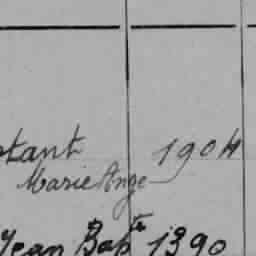 tant 1904
Marie Ange
Jean Bapte 1390